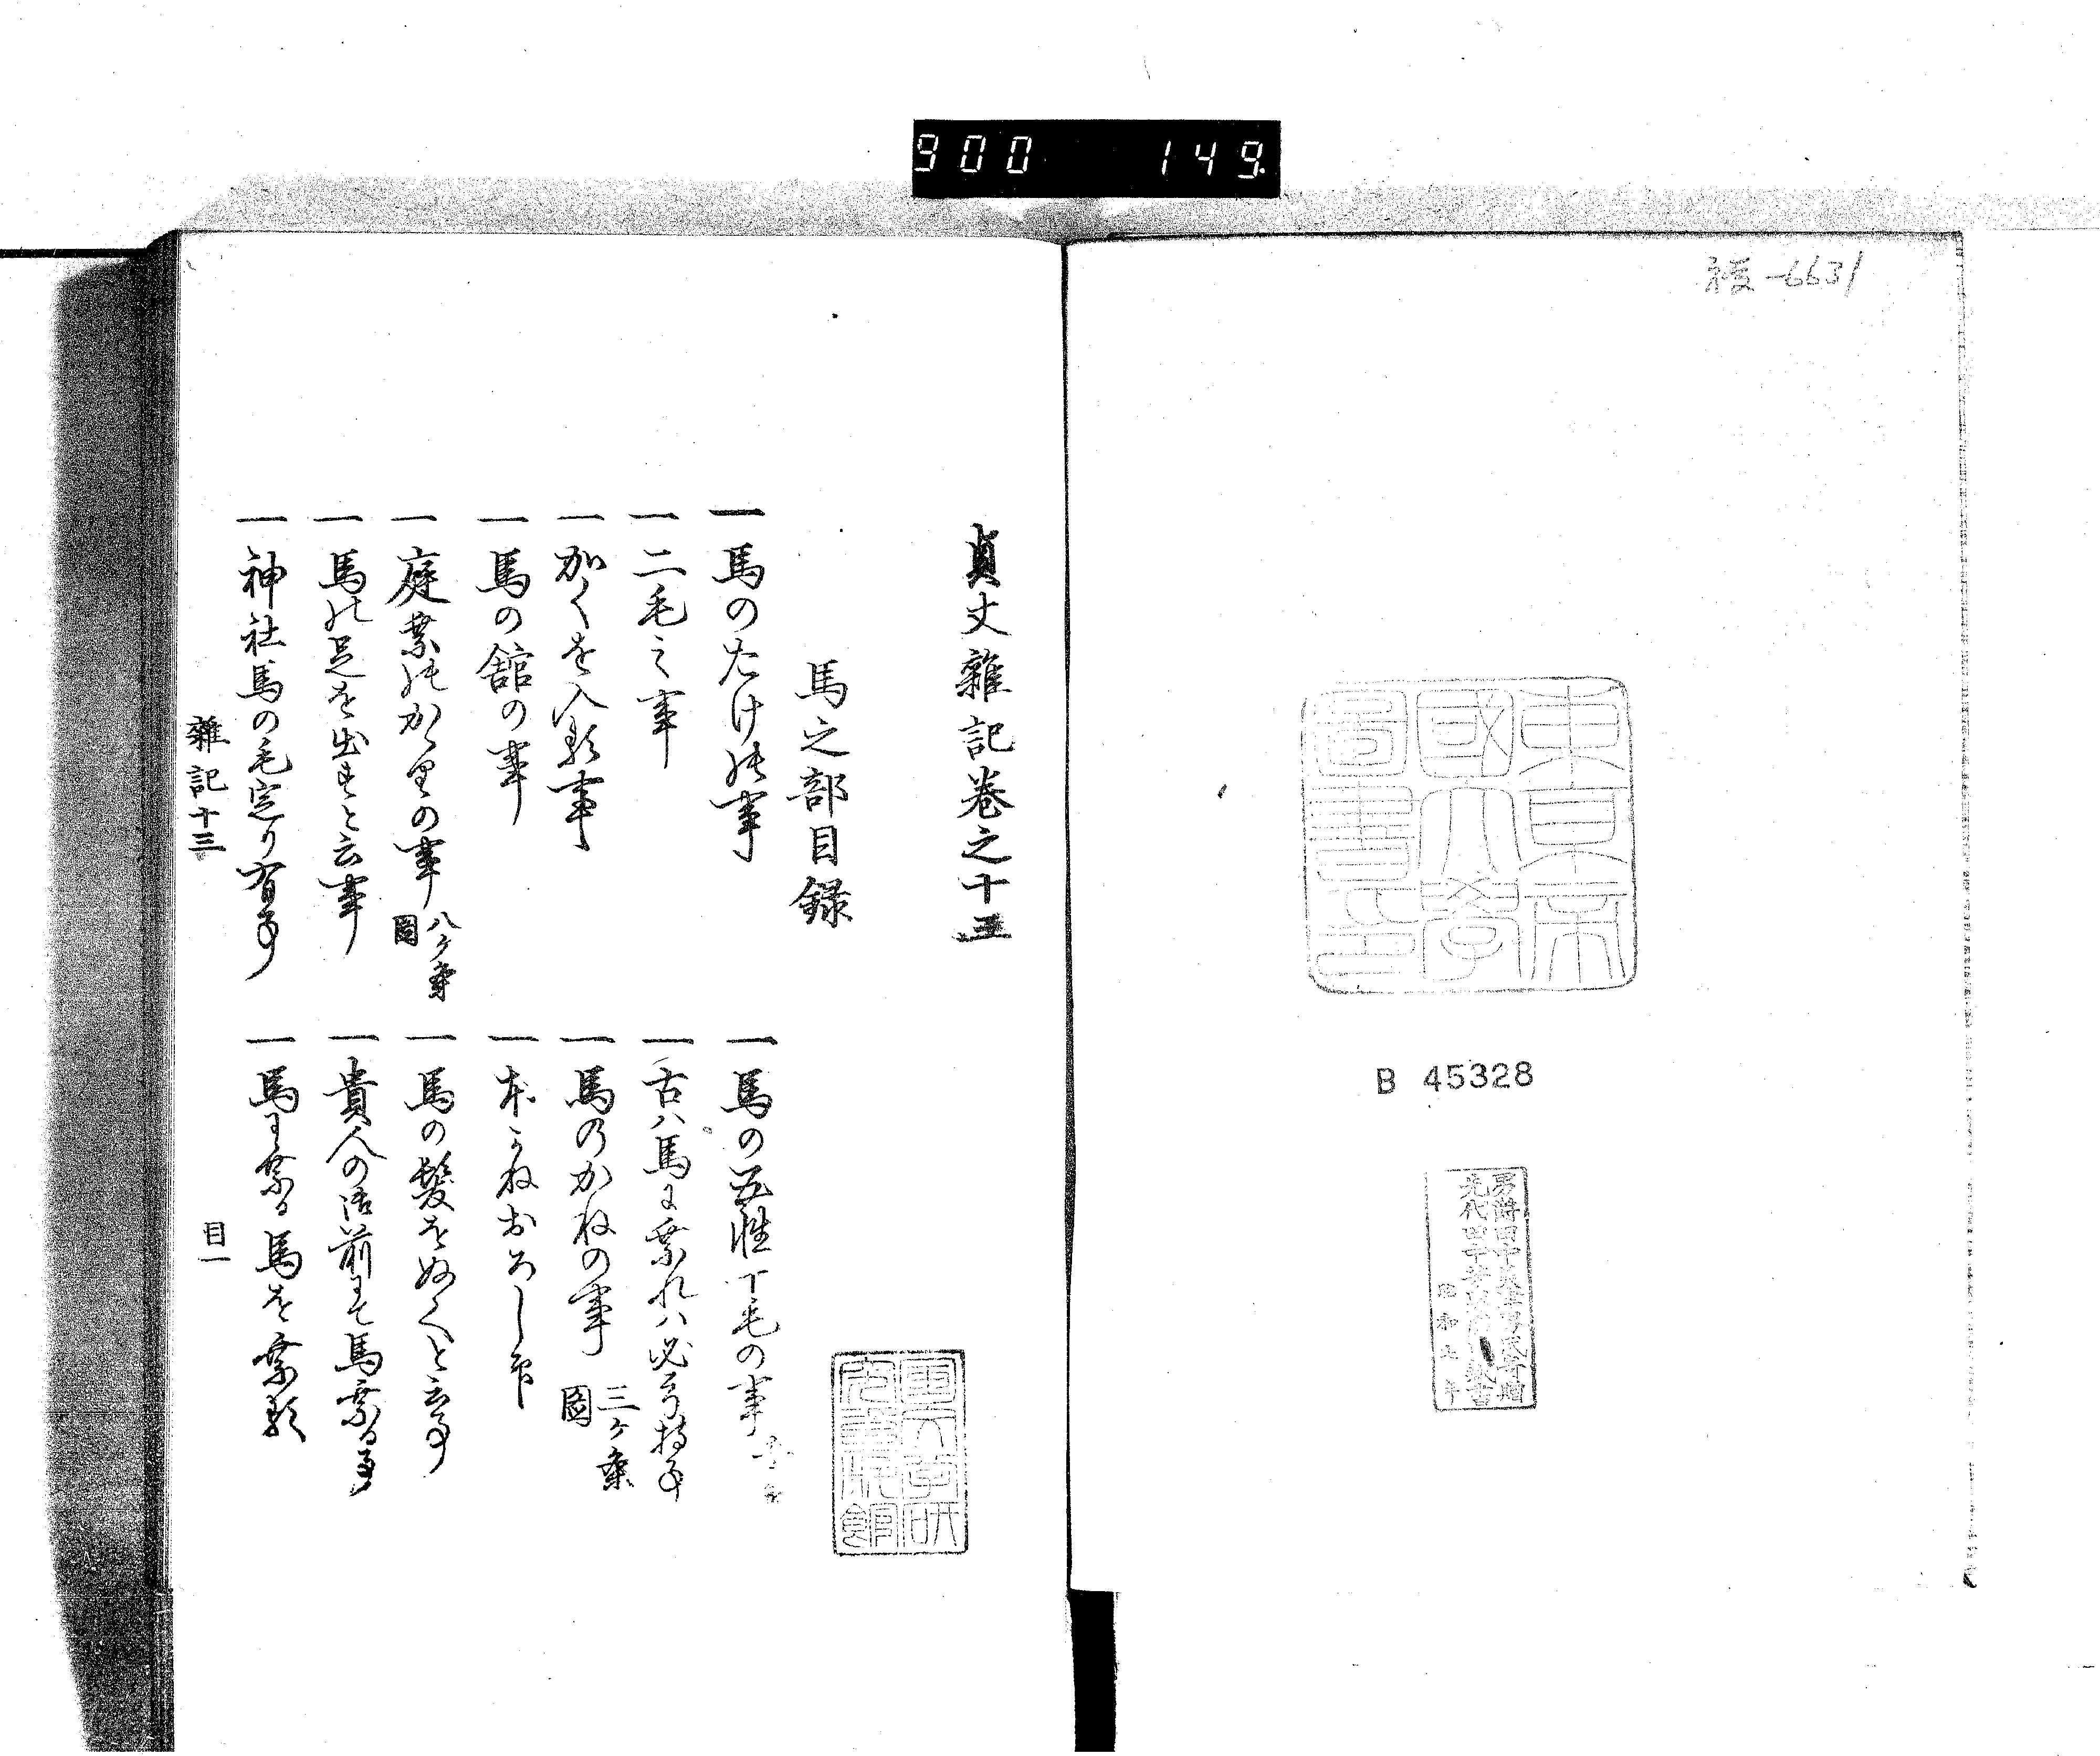 900 149
-6631
東京帝
國大學
圖書印
B 45328
貞丈雜記卷之十三
馬之部目録
一馬のたけの事
一馬の五性十毛の事
一二毛之事
一古ハ馬に乗れハ必弓持事
一かくを入るゝ事
一馬のかねの事 三ケ条 図
一馬の舘の事
一本かねおろし事
一庭乗のかゝりの事 八ケ条 図
一馬の髪をぬくと云事
一馬の足を出すと云事
一貴人の御前にて馬乗る事
一神社馬の毛定り有事
一馬に乗る馬を乗
雜記十三
目一